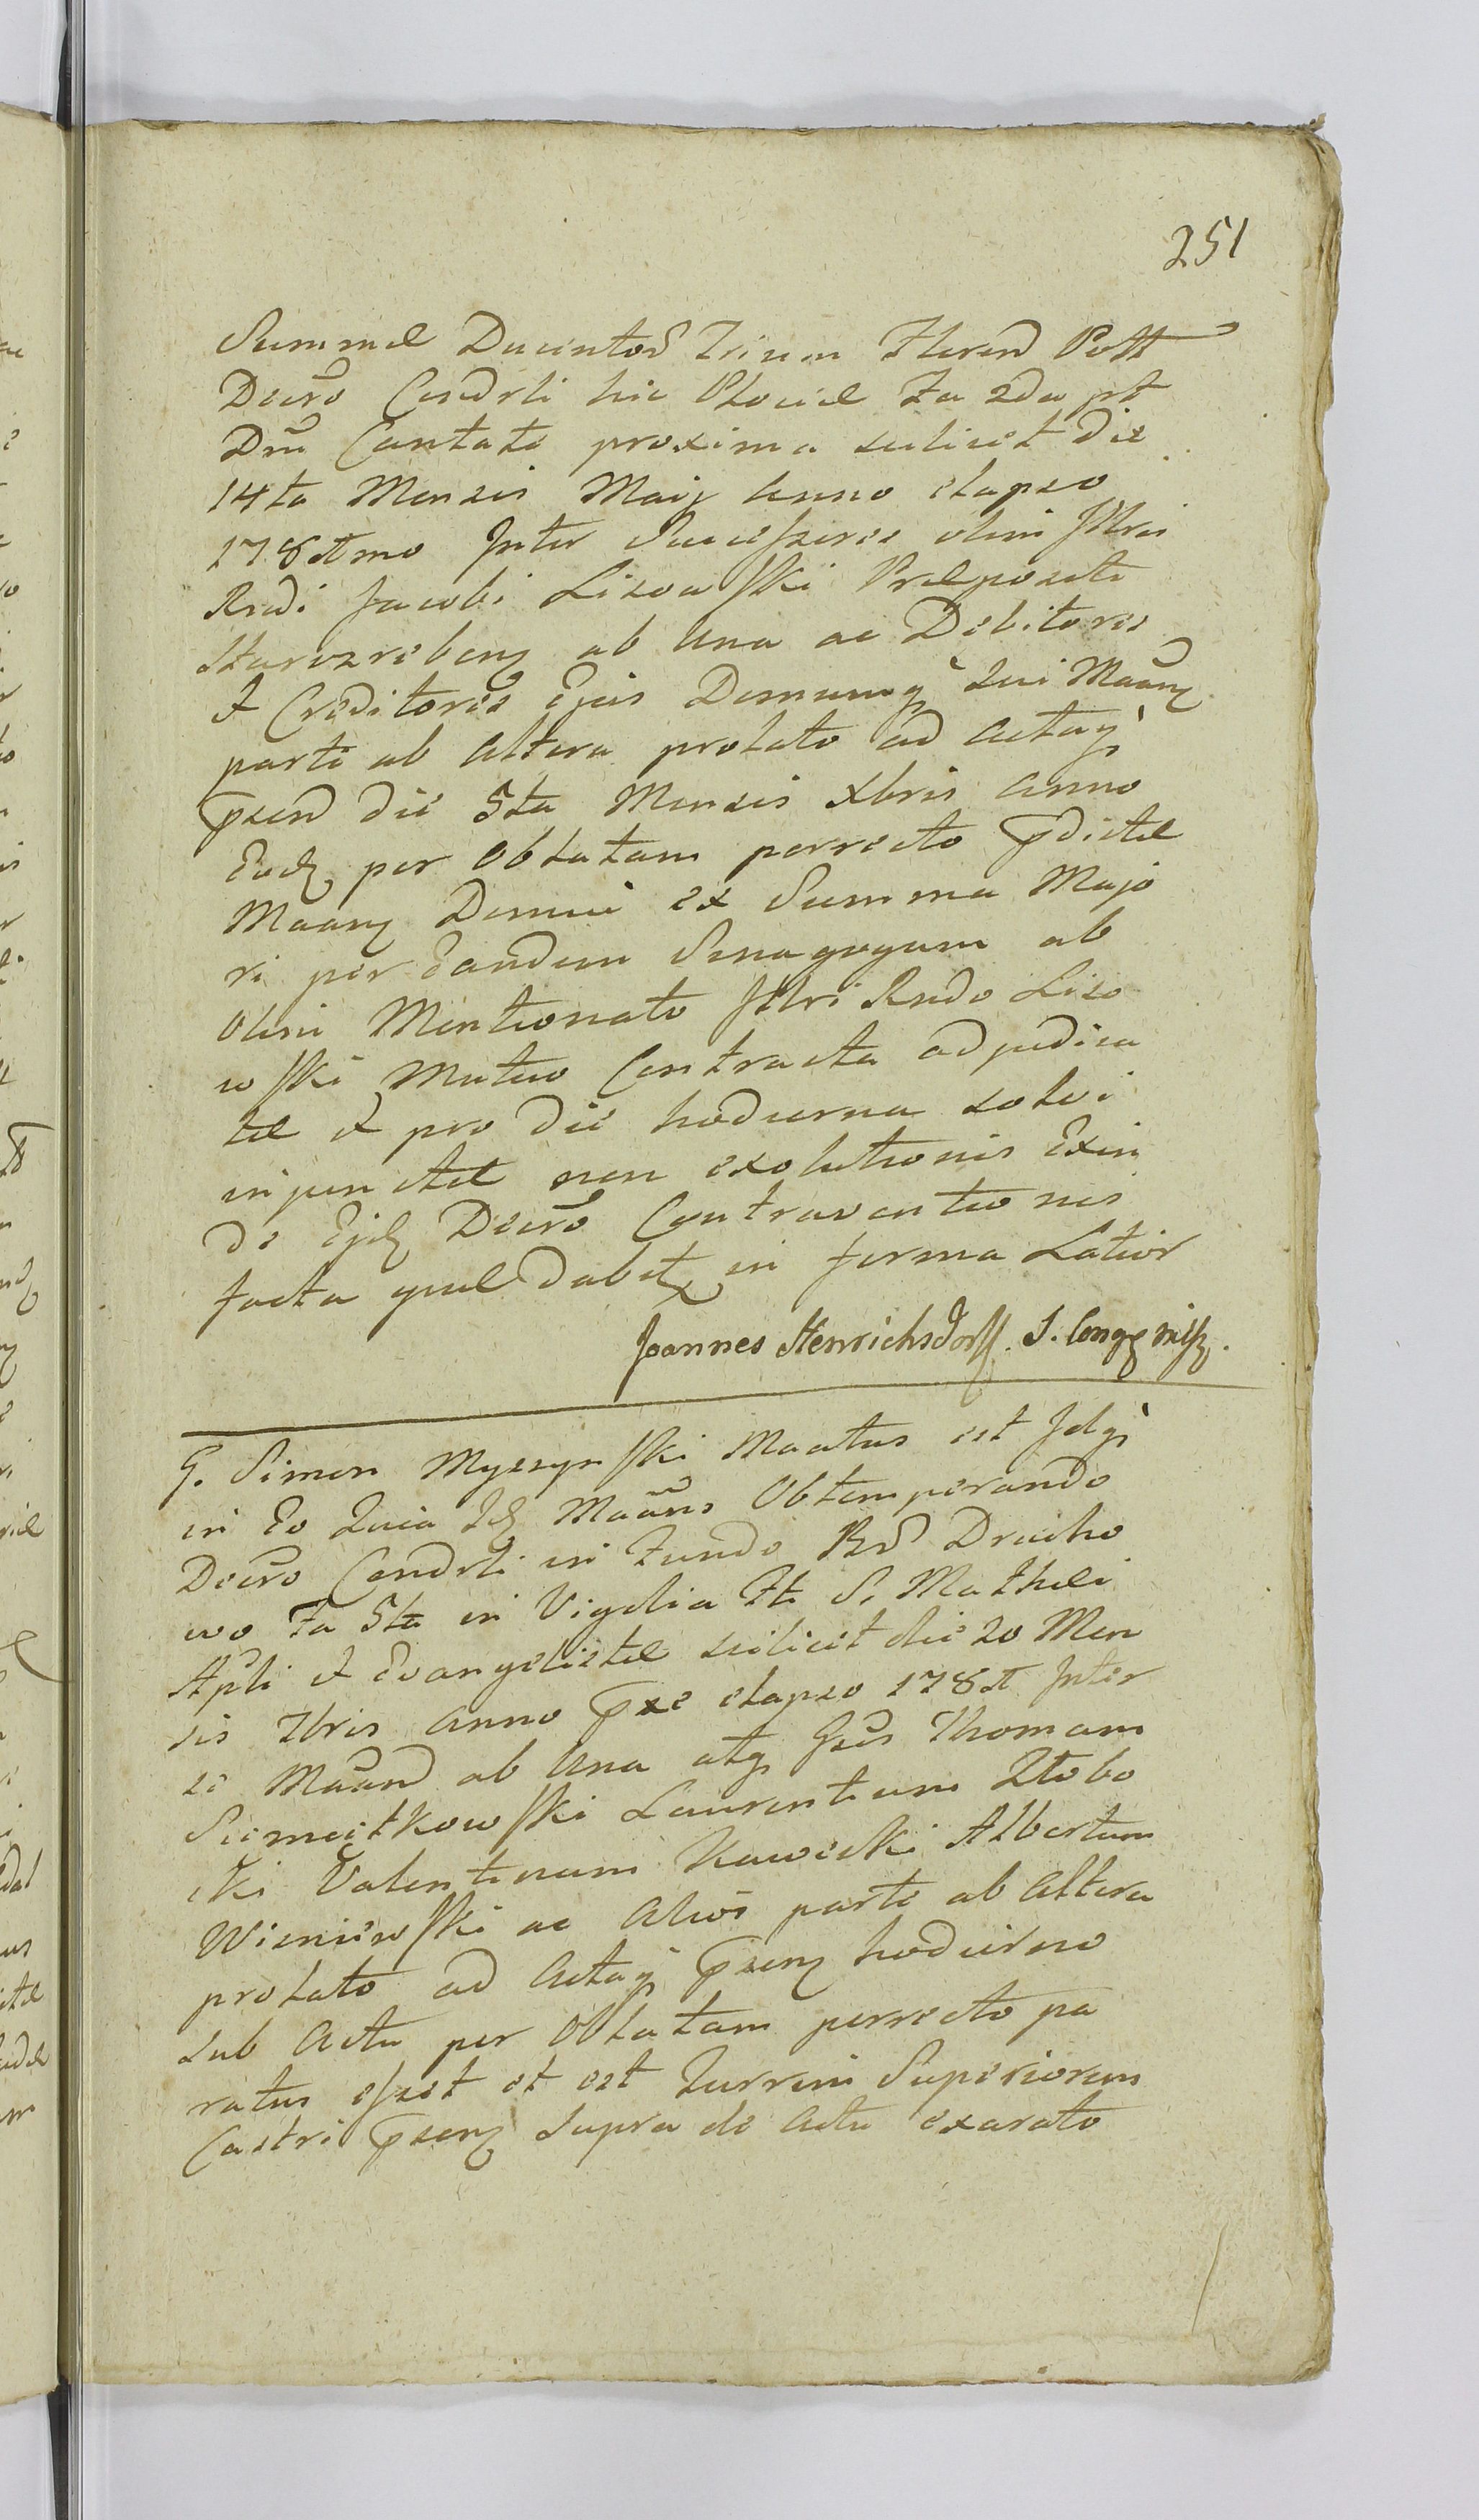 251
Summæ Ducentorũ Trium Floren Poll
Decrõ Condrli hic Plociæ Fa 2da pt
Dnĩ Cantate proxima scilicet die
14ta Mensis Maij Anno elapso
1781mo Inter Successores olim Illris
Rndi Jacobi Lisowski Præpositi
Starozreben ab una ac Debitores
et Creditores Ejus Demumq sui Maãn
parte ab altera prolato ad Actaq
pxen die 5ta Mensis Xbris Anno
Eod per Oblatam porrecto pdictæ
Maan Domui ex Summa Majo
ri per Eandem Sinagogam ab
olim Mentionato Illri Rndo Liso
wski Mutuo Contracta adjudica
tæ et pro die hodierna solvi
injunctæ non exolutionis Exin
de Ejd Decrõ Contraventionis
facta quæ dabit in forma Latior
Joannes Henrichsdorff. S.
G. Simon Myszynski Maatus est Idq
in Eo Quia Id Maãns Obtemperando
Decrõ Condrli in Fundo Bnõ Drucho
wo Fa 5ta in Vigilia Fti S. Mathæi
Apli et Evangelistæ scilicet die 20 Men
sis 7bris Anno pxe elapso 1781 Inter
se Maand ab una atq Gsũs Thomam
Siemiątkowski Laurentium Zlobo
cki Valentinum Kawecki Albertum
Wisniewski ac Alios parte ab Altera
prolato ad Actaq psen hodierno
sub Actu per Oblatam porrecto pa
ratus esset et est Turrim Superiorem
Castri psen supra de Actu exarato